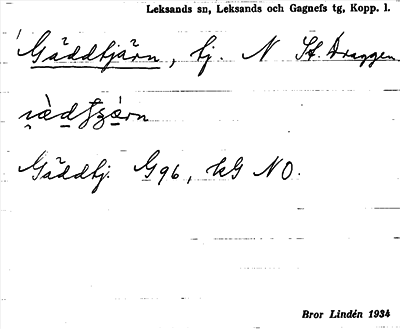 Leksands sn, Leksands och Gagnefs tg, Kopp. l.
Gäddtjärn, tj. N St. Draggen
Gäddtj. G96, kG NO.
Bror Lindén 1934